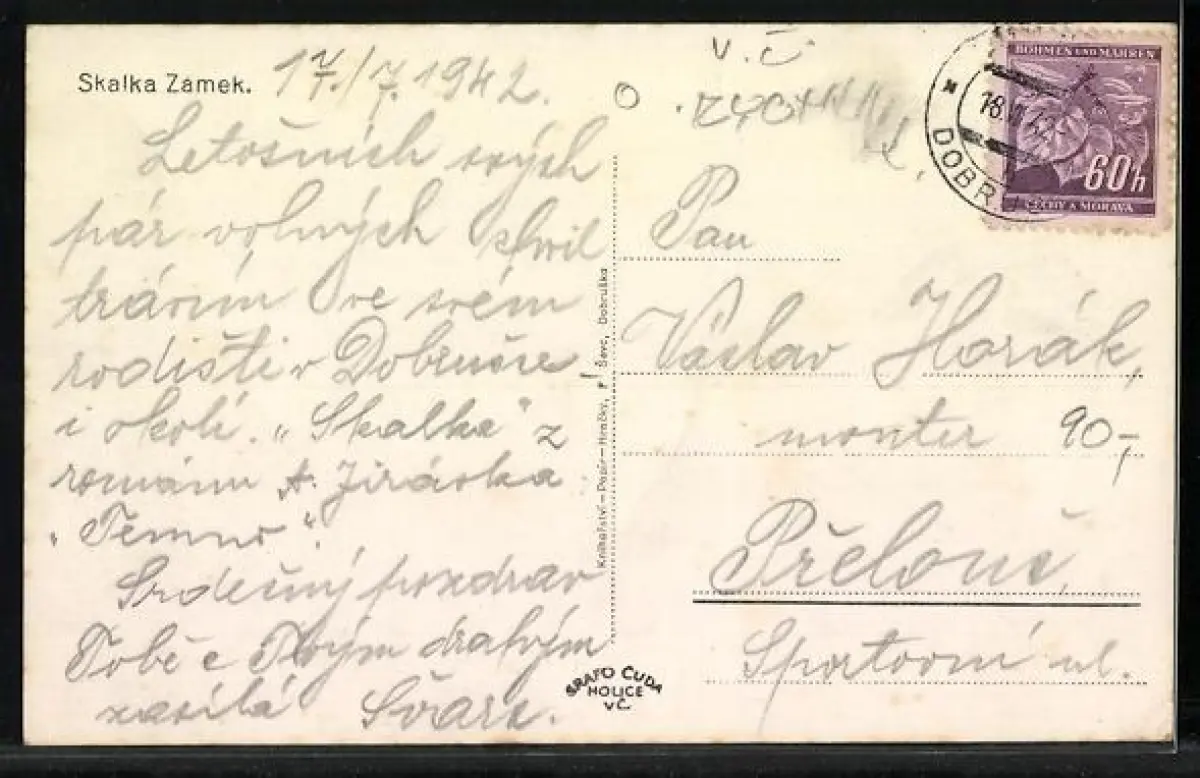 Skalka Zámek.
17./7. 1942.
Letošních svých
pár volných chvil
trávím ve svém
rodišti v Dobrušce
i okolí. „Skalka" z
románu A. Jiráska
„Temno".
Srdečný pozdrav
Tobě a Tvým drahým
zasílá Švarc.
Knihařství—Papír—Hračky, F. Ševc, Dobruška
GRAFO ČUDA
HOLICE
VČ.
V.Č
BÖHMEN UND MÄHREN
60h
ČECHY A MORAVA
DOBR
Pan
Václav Horák,
montér
90,-
Přelouč,
Sportovní ul.